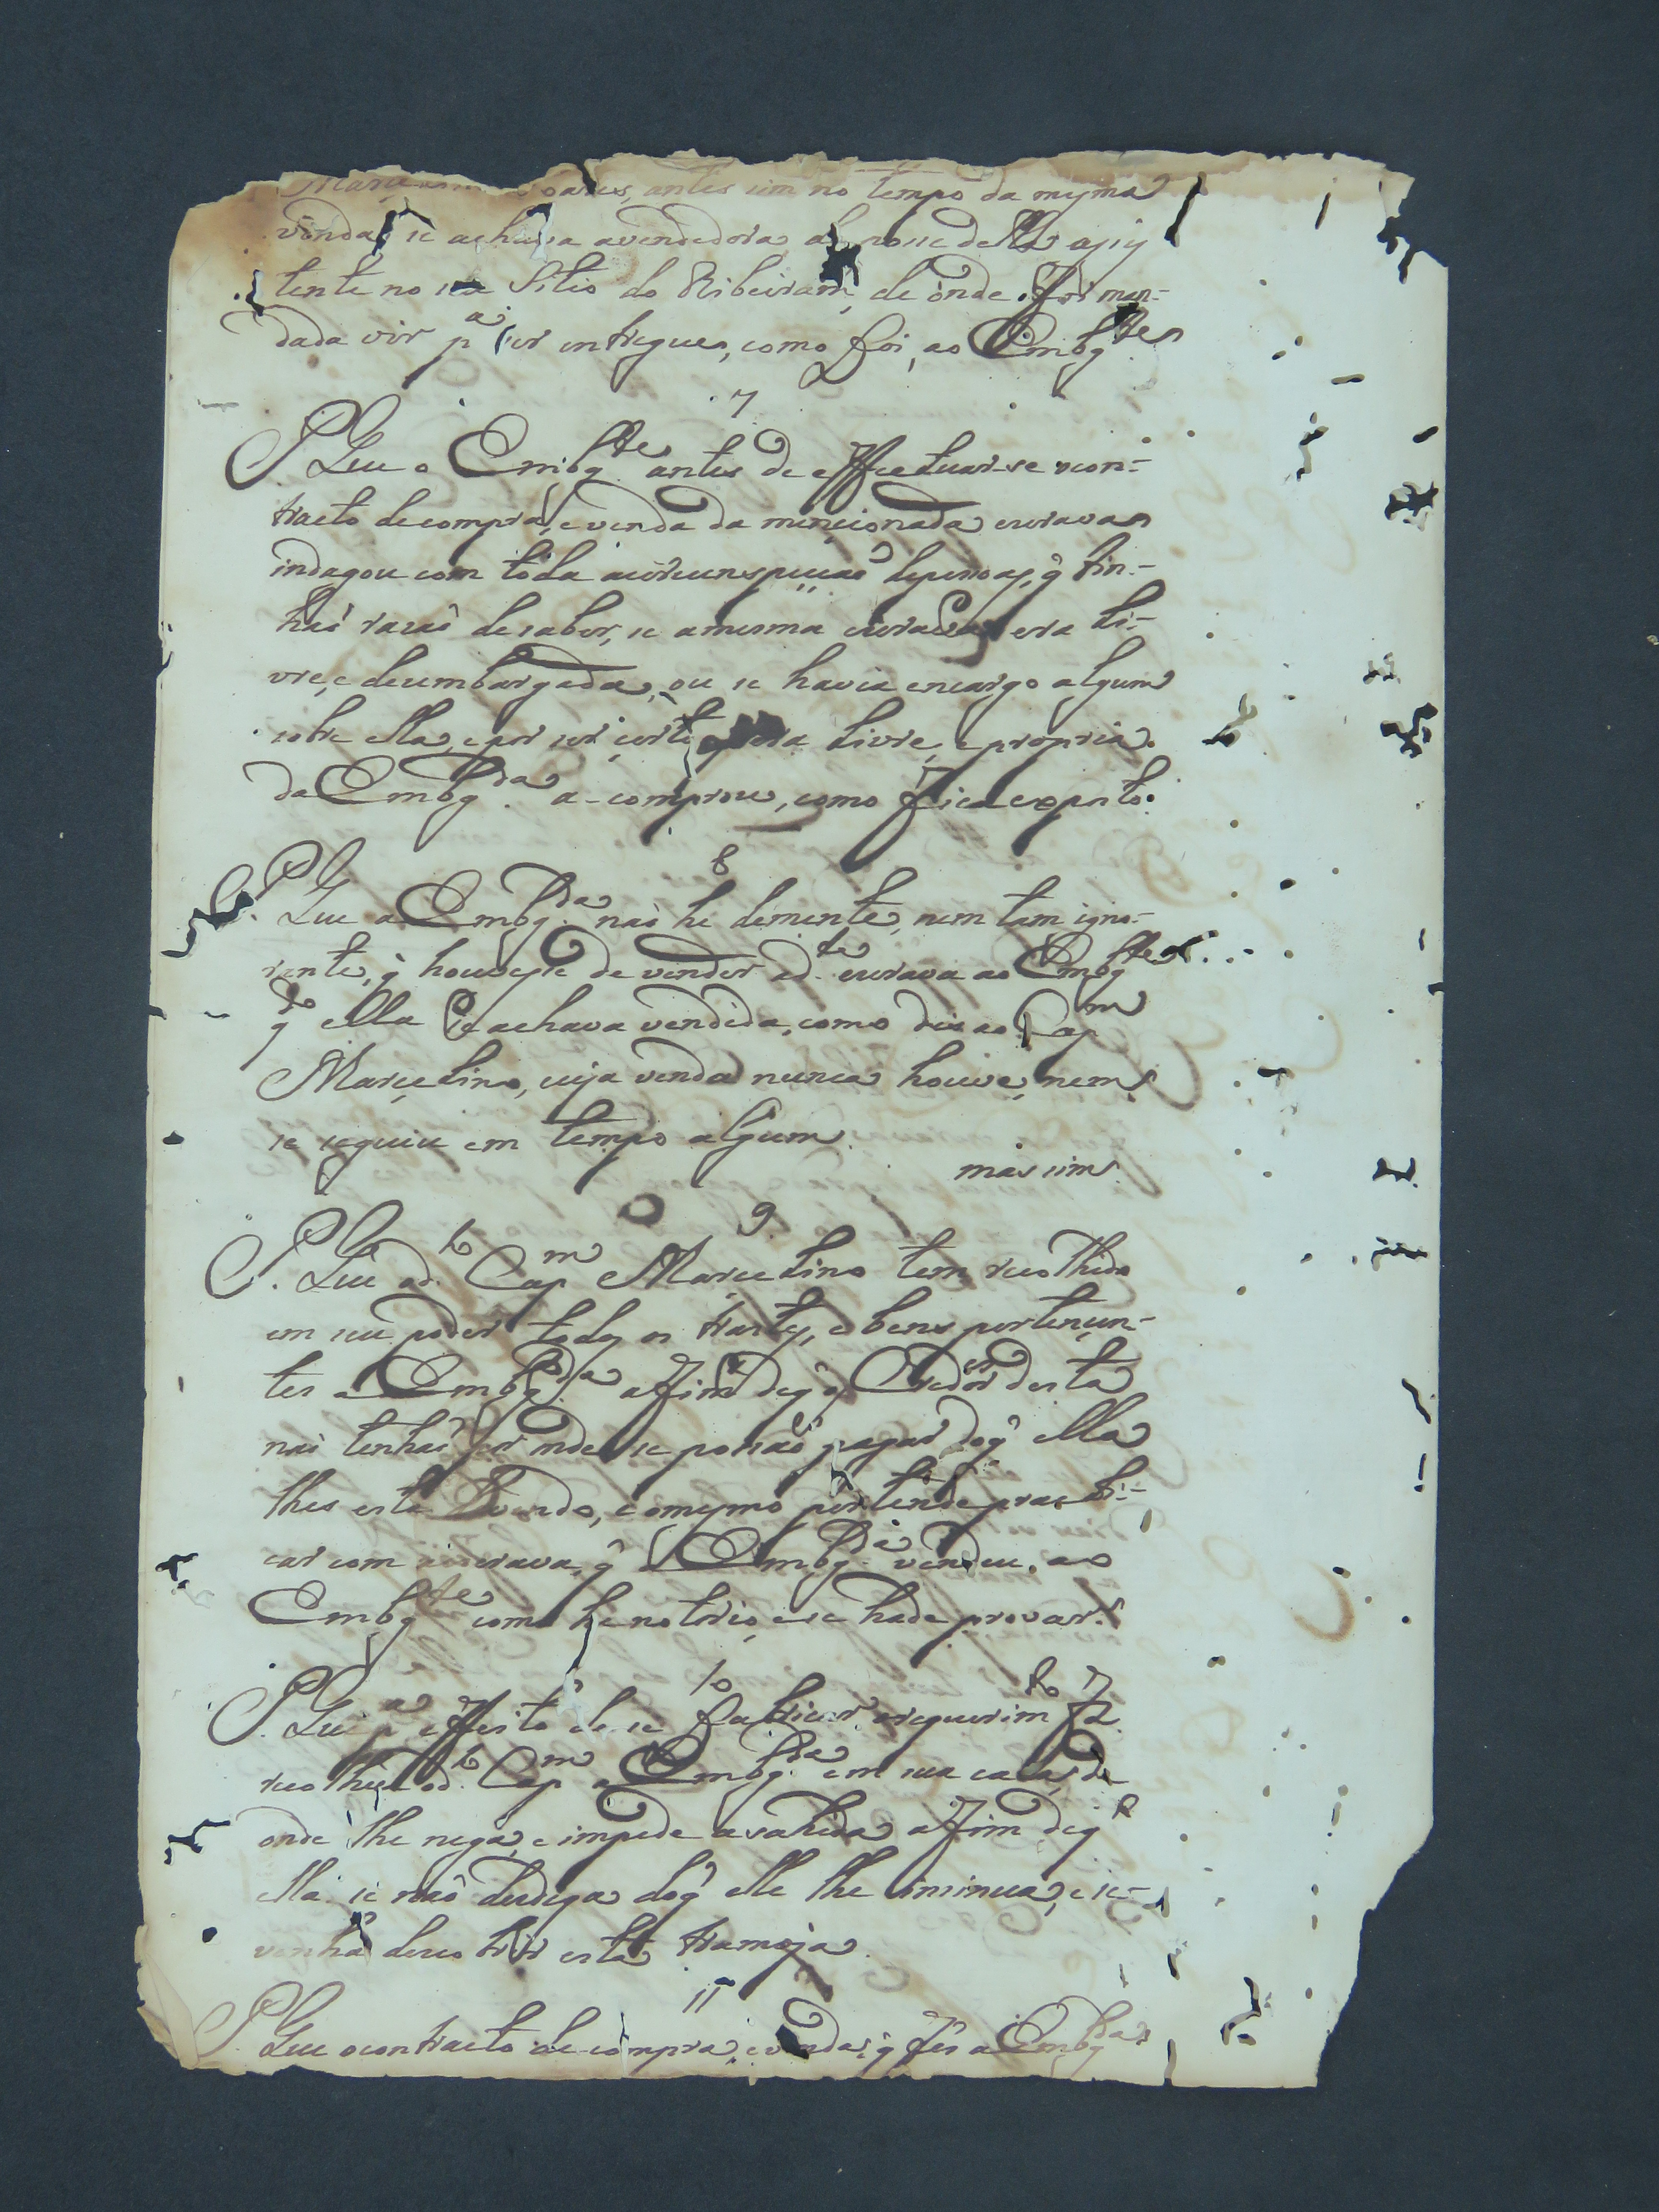 antes sim no tempo da mesma
venda se achava avendedora de posse della assis
tente no seu Sitio do Ribeiram, de onde foi man-
dada vir pª ser entregue, como foi, ao Embgte
7
P. Que o Embgte antes de effectuar-se o con-
tracto decompra, e venda da mencionada escrava
indagou com toda acircunspecçaõ depessoas, q̃ tin-
haõ rasaõ desaber, se amesma escrava era li-
vre, e desembargada, ou se havia encargo algum
sobre ella, e por ser certo q̃ era livre, e propria
da Embgda a comprou, como fica exposto.
8
P. Que a Embgda naõ he demente, nem tam igno-
rante, q̃ houvesse de vender ad.ta escrava ao Embgte
qdo ella se achava vendida, como diz ao Capm
Marcelino, cuja venda nunca houve, nem
se seguiu em tempo algum.
mas sim
9
P. Que od.to Capm Marcelino tem recolhido
em seu poder todos os trastes, e bens pertencen-
tes a Embgda afim deq̃ os Credores desta
naõ tenhaõ por onde se possaõ pagar doq̃ ella
lhes está devendo, e omesmo pertende practi-
car com a escrava, q̃ a Embgda vendeu ao
Embgte como he notorio, e se hade provar.
10
P. Que pª effeito de se fabricar orequerimto f 2
recolheu od.to Capm a Embgda em sua casa, de
onde lhe nega, e impede asahida afim deq̃
ella se naõ desdiga doq̃ elle lhe insinua, e se
venha descobrir esta tramoja.
11
P. Que ocontracto de compra, e venda, q̃ fes a Embgda